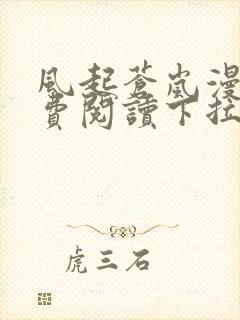 風起蒼嵐漫
費閱讀下拉
虎三石